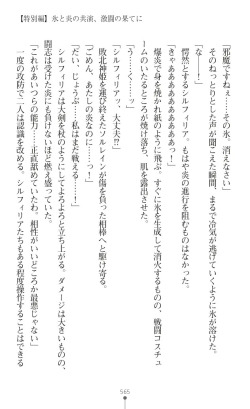 【特別編】氷と炎の共演、激闘の果てに
「邪魔ですね……。その氷、消えなさい」
ねのっとりとした声が聞こえた瞬間、まるで冷気が逃げていくように氷が溶けた。
「な――！」
愕然とするシルフィリア。もはや炎の進行を阻むものはない。
「きゃああああああああっ！」
爆炎で身を焼かれ紙のように飛ぶ。すぐに氷を生成して消火するものの、戦闘コスチュ
ームのいたるところが焼け落ち、肌を露出させた。
「うっ……く……」
「シルフィリアッ、大丈夫!?」
敗北神姫を運び終えたソルレインが傷を負った相棒へと駆け寄る。
「ごめん、あんたの炎なのに……っ！」
「だい、じょうぶ……私は、まだ戦える……」
シルフィリアは大剣を杖のようにしてよろよろと立ち上がる。ダメージは大きいものの、
闘志はまったく衰えを見せない
「これがあいつらの能力……正直舐めていたわ。相性がいいどころか最悪じゃない」
一度の攻防で二人は認識を改める。シルフィリアたちもある程度操作することはできる
565